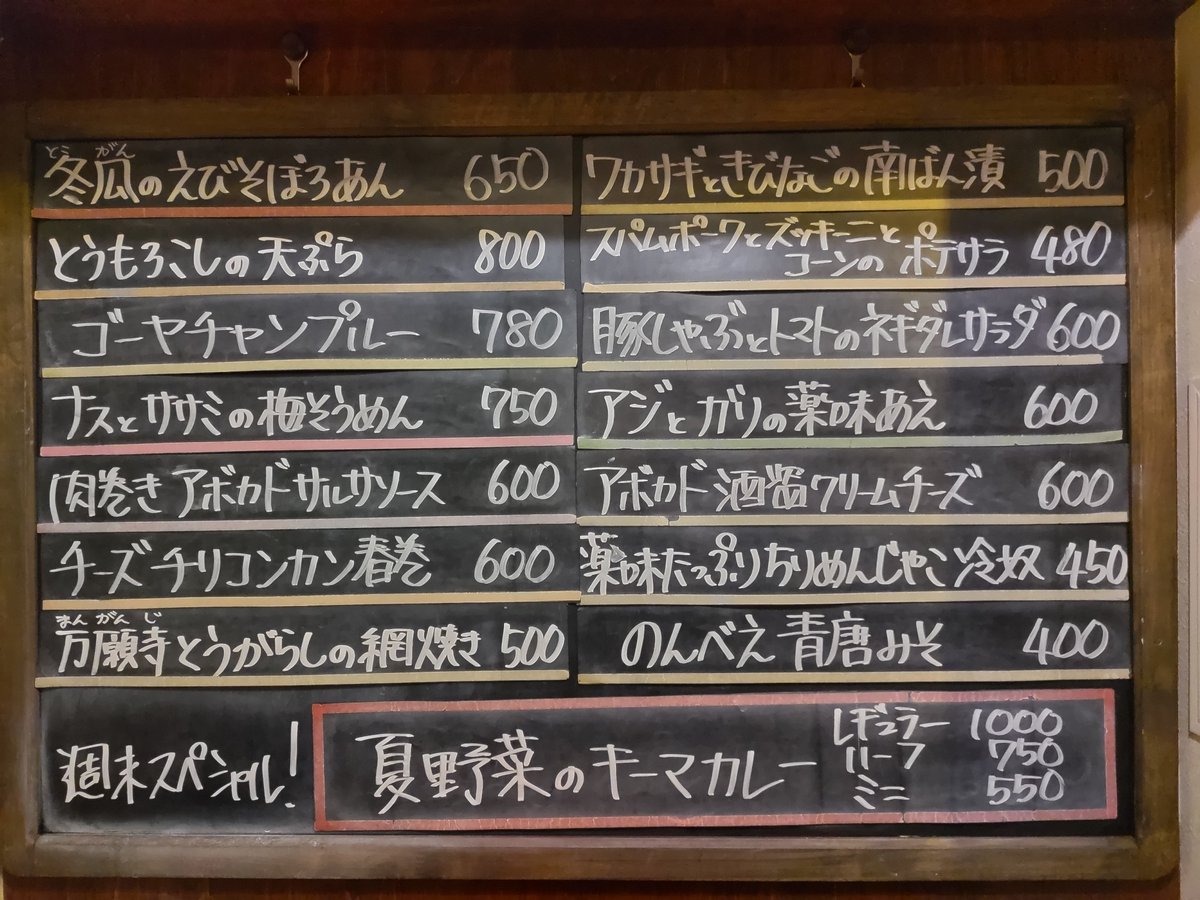 とうがん
冬瓜のえびそぼろあん 650
とうもろこしの天ぷら 800
ゴーヤチャンプルー 780
ナスとササミの梅そうめん 750
肉巻きアボカドサルサソース 600
チーズチリコンカン春巻 600
まんがんじ
万願寺とうがらしの網焼き 500
ワカサギときびなごの南ばん漬 500
スパムポークとズッキーニと
コーンのポテサラ 480
豚しゃぶとトマトのネギダレサラダ 600
アジとガリの薬味あえ 600
アボカド酒盗クリームチーズ 600
薬味たっぷりちりめんじゃこ冷奴 450
のんべえ青唐みそ 400
週末スペシャル!
夏野菜のキーマカレー
レギュラー 1000
ハーフ 750
ミニ 550